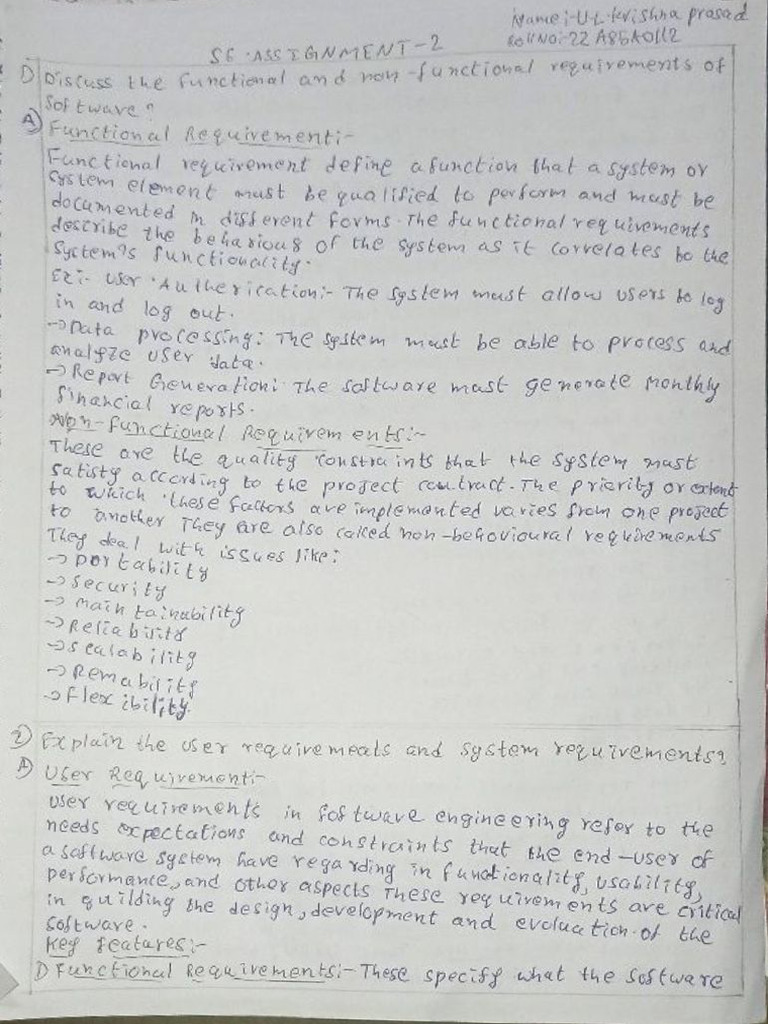 Name:- U.L. krishna prasad
Roll No:- 22 A85A0112
SE. ASSIGNMENT-2
1) Discuss the functional and non-functional requirements of
software?
A) Functional Requirement:-
Functional requirement define a function that a system or
system element must be qualified to perform and must be
documented in different forms. The functional requirements
describe the behaviour of the system as it correlates to the
system's functionality.
Ex:- user Autherication:- The system must allow users to log
in and log out.
→Data processing: The system must be able to process and
analyze user data.
→Report Generation: The software must generate monthly
financial reports.
Non-functional Requirements:-
These are the quality constraints that the system must
satisty according to the project contract. The priority or extent
to which these factors are implemented varies from one project
to another They are also called non-behavioural requirements
They deal with issues like:
→portability
→security
→maintainability
→Reliability
→scalability
→Remability
→flexibility.
2) Explain the user requirements and system requirements?
A) User Requirement:-
user requirements in software engineering refer to the
needs expectations and constraints that the end-user of
a software system have regarding in functionality, usability,
performance, and other aspects These requirements are critical
in guilding the design, development and evoluation of the
software.
key features:-
1) Functional Requirements:- These specify what the software